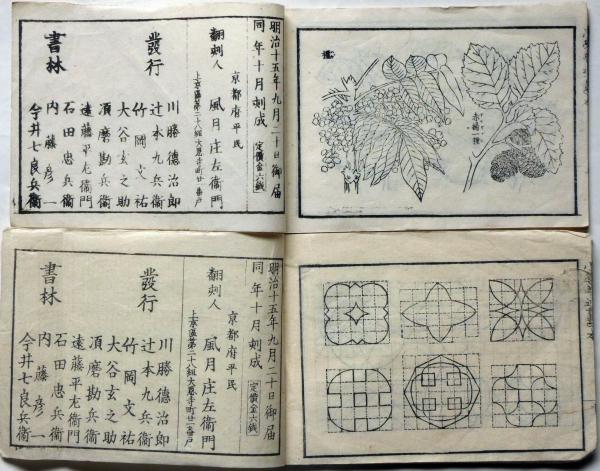 赤楊一種
明治十五年九月二十日御届
同年十月刻成 定價金六錢
京都府平民
翻刻人 風月庄左衛門
上京區第二十八組大恩寺町廿一番戸
發行
書林
川勝德治郎
辻本九兵衛
竹岡文祐
大谷玄之助
須磨勘兵衛
遠藤平左衛門
石田忠兵衛
内藤彦一
今井七良兵衛
明治十五年九月二十日御届
同年十月刻成 定價金六錢
京都府平民
翻刻人 風月庄左衛門
上京區第二十八組大恩寺町廿一番戸
發行
書林
川勝德治郎
辻本九兵衛
竹岡文祐
大谷玄之助
須磨勘兵衛
遠藤平左衛門
石田忠兵衛
内藤彦一
今井七良兵衛